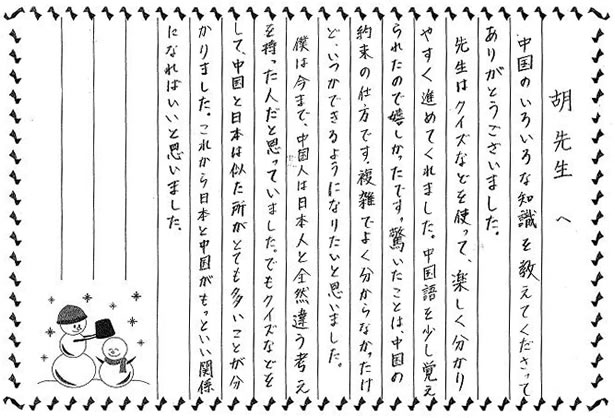 胡先生へ
中国のいろいろな知識を教えてくださって
ありがとうございました。
先生はクイズなどを使って、楽しく分かり
やすく進めてくれました。中国語を少し覚え
られたので嬉しかったです。驚いたことは、中国の
約束の仕方です。複雑でよく分からなかったけ
ど、いつかできるようになりたいと思いました。
僕は今まで、中国人は日本人と全然違う考え
を持った人だと思っていました。でもクイズなどを
して、中国と日本は似た所がとても多いことが分
かりました。これから日本と中国がもっといい関係
になればいいと思いました。